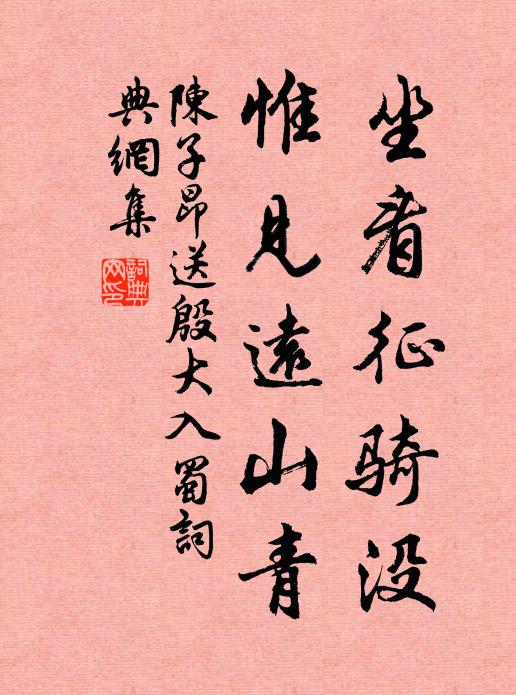 坐看征騎没
惟見遠山青
陳子昂送殷大入蜀詞
典網集
詞典網印